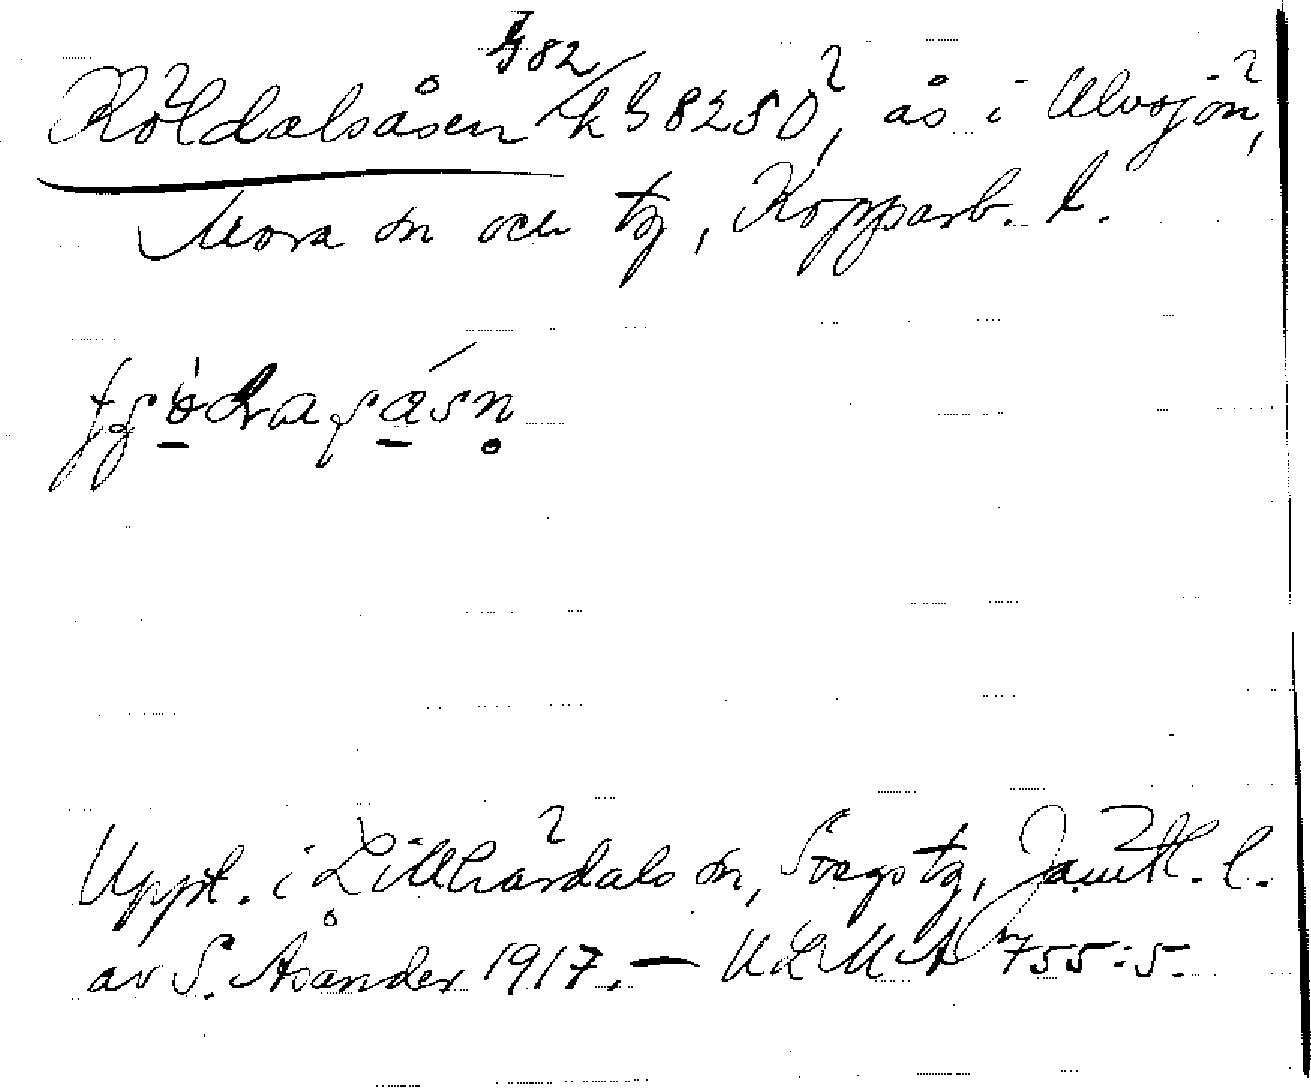 Köldalsåsen k G 8250, ås i Ulvsjön,
Mora sn och tg, Kopparb. l.
Uppt. i Lillhärdals sn, Svegs tg, Jämtl. l.
av S. Åsander 1917. – ULMA 755:5.